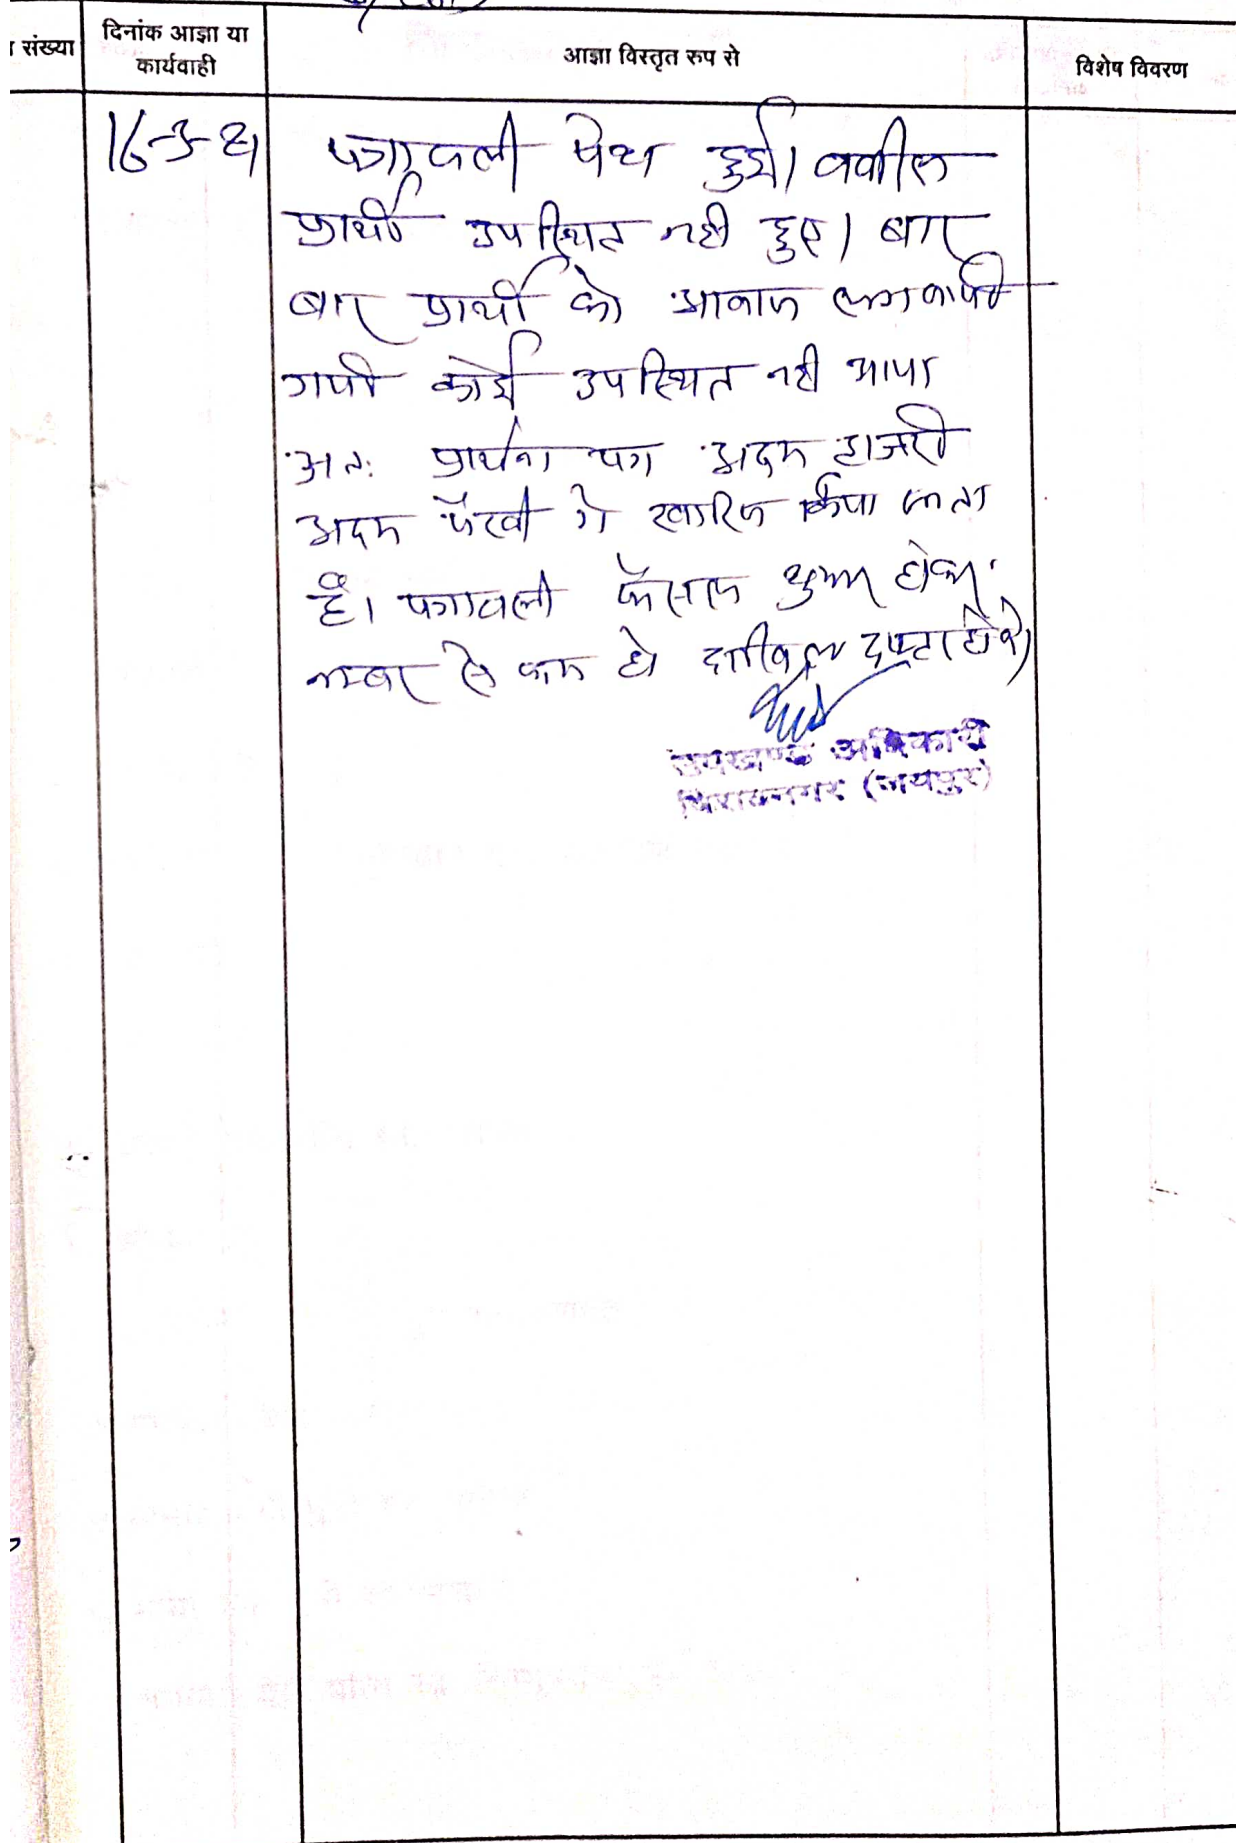 संख्या
दिनांक आज्ञा या
कार्यवाही
आज्ञा विस्तृत रुप से
विशेष विवरण
16-3-21
पत्रावली पेश हुई। वकील
प्रार्थी उपस्थित नही हुए। बार
बार प्रार्थी को आवाज लगवायी
गयी कोई उपस्थित नही आया
अतः प्रार्थना पत्र अदम हाजरी
अदम पैरवी मे खारिज किया जाता
है। पत्रावली फैसल शुमार होकर
नम्बर से कम हो दाखिल दफ्तर होवे।
उपखण्ड अधिकारी
विराटनगर (जयपुर)